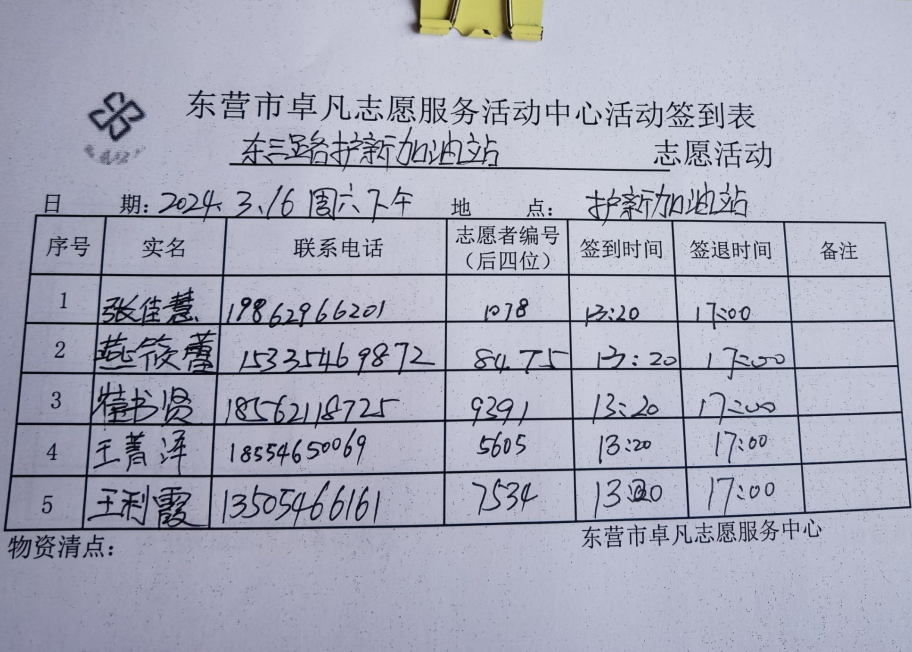 东营市卓凡志愿服务活动中心活动签到表
东三路护新加油站 志愿活动
日 期：2024.3.16 周六下午 地 点：护新加油站
序号 实名 联系电话 志愿者编号（后四位） 签到时间 签退时间 备注
1 张佳慧 19862966201 1078 13:20 17:00
2 燕筱蕾 15335469872 8475 13:20 17:00
3 书贤 18562118725 9391 13:20 17:00
4 王菁泽 18554650069 5605 13:20 17:00
5 王利霞 13505466161 7534 13:20 17:00
物资清点： 东营市卓凡志愿服务中心